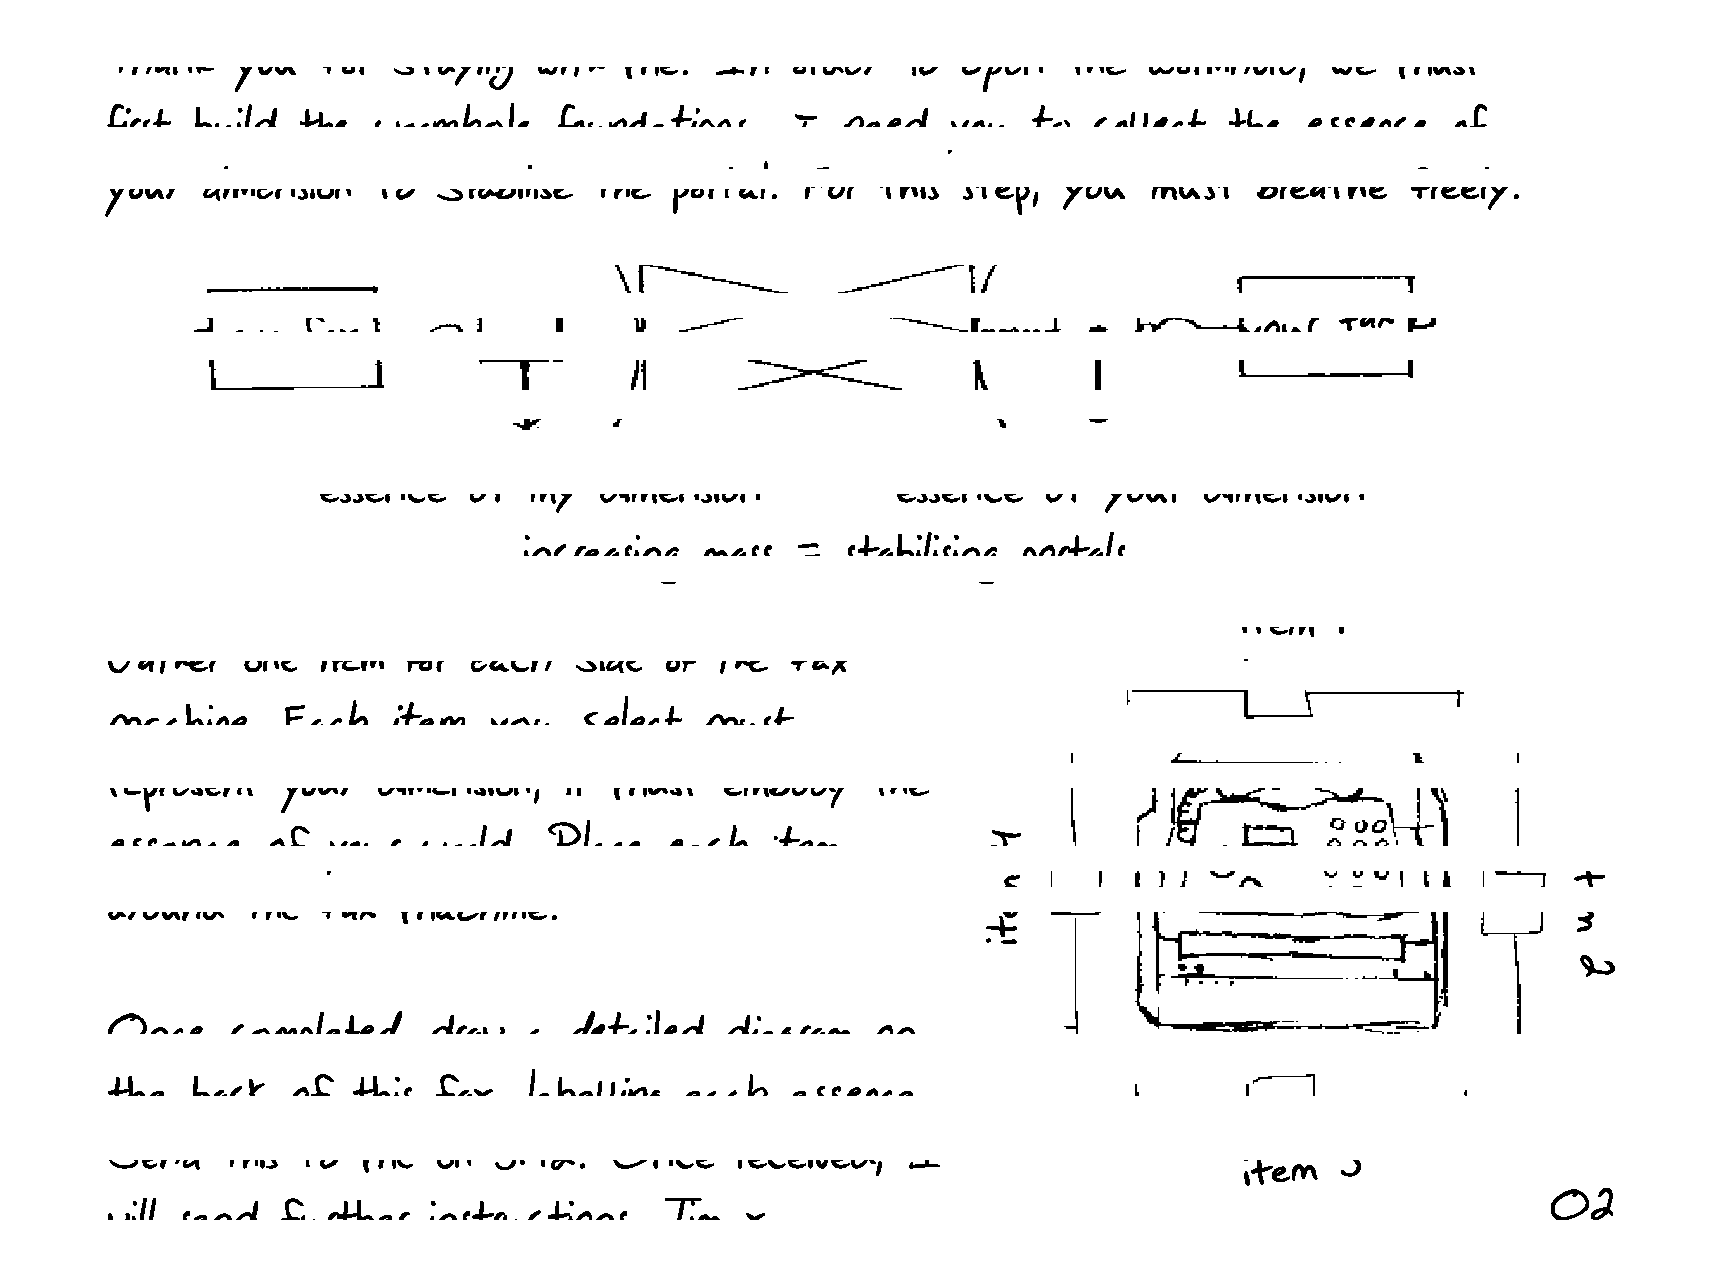 Thank you for staying with me. In order to open the wormhole, we must
first build the wormhole foundations. I need you to collect the essence of
your dimension to stabilise the portal. For this step, you must breathe freely.
your fax
essence of my dimension essence of your dimension
increasing mass = stabilising portals
item 1
Gather one item for each side of the fax
machine. Each item you select must
represent your dimension, it must embody the
essence of your world. Place each item
around the fax machine.
item 4
item 2
Once completed draw a detailed diagram on
the back of this fax labelling each essence
Send this to me on Once received, I
will send further instructions. Tim x
item 3
02